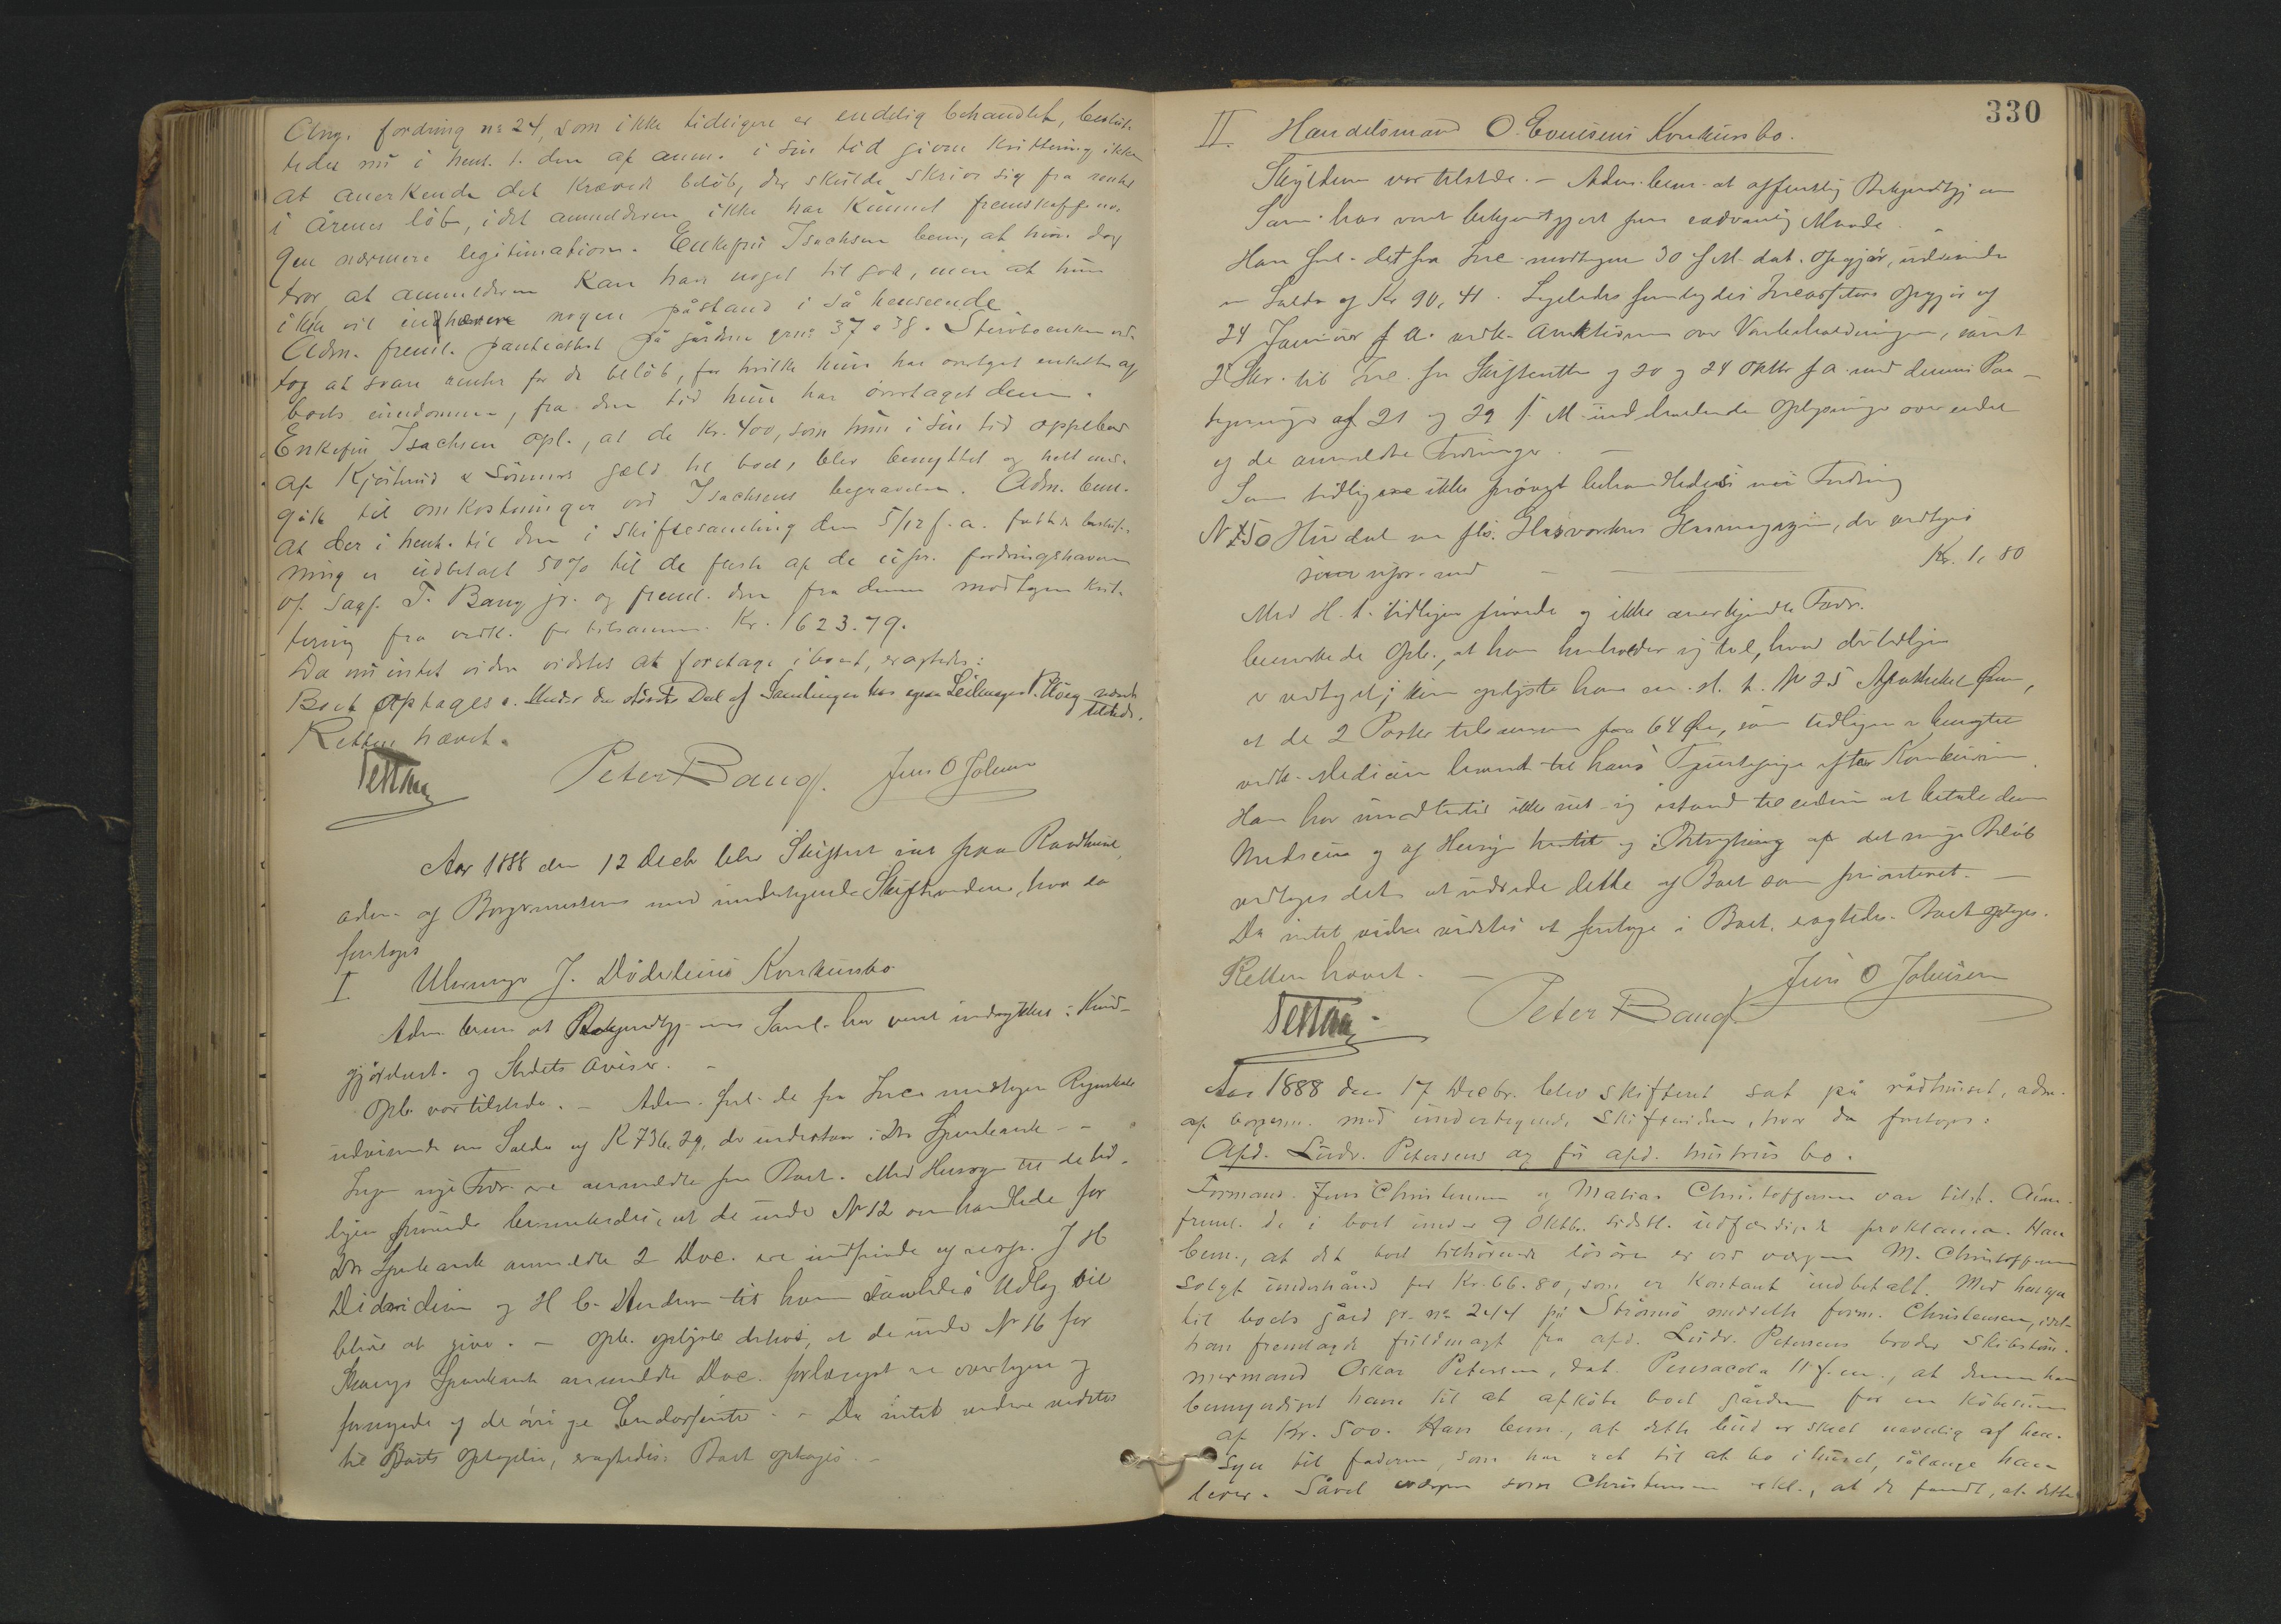 Ang. fordring no 24, som ikke tidligere er endelig behandlet, beslut-
tedes nu i henh. t. den af anm. i sin tid givne kvittering ikke
at anerkende det krævede beløb, der skulde skrive sig fra renter
i årenes løb, idet anmelderen ikke har kunnet fremskaffe no-
gen nærmere legitimation. Enkefru Isachsen bem., at hun dog
tror, at anmelderen kan have noget til gode, men at hun
ikke vil nogen påstand i så henseende
Adm. freml. panteattest på gårdene grno 37 o 38. Stervboenken ved-
tog at svare renter for de beløb, for hvilke hun har overtaget enkelte af
boets eiendomme, fra den tid hun har overtaget dem.
Enkefru Isachsen opl., at de Kr. 400, som hun i sin tid oppebar
af & Sønners gæld til boet, blev benyttet og helt med-
gik til omkostninger ved Isachsens begravelse. Adm. bem.
at der i henh. til den i skiftesamling den 5/12 f. a. fattede beslut-
ning er udbetalt 50% til de fleste af de upr. fordringshavere
af sagf. T. Bang jr. og freml. den fra denne modtagne kvit-
tering fra vedk. for tilsammen Kr. 1623.79.
Da nu intet videre vidstes at foretage i boet, eragtedes:
Boet optages. Under den største Del af Samlingen har ogsaa været
tilstede.
Retten hævet.
Peter Bang. Jens O Johnsen
Aar 1888 den 12 Decb blev Skifteret sat paa Raadhuset,
adm. af Borgermesteren med undertegnede Skiftevidner, hvor da
foretoges
I. Uhrmager J. Dödeleins Konkursbo
Adm. bem. at Bekjendtgj. om Saml. har været indrykket i Kund-
gjørelsest. og Stedets Aviser. –
Opb. var tilstede. – Adm. freml. de fra Inc. modtagne Regnskab
udvisende en Saldo af K 736,29, der indestaar i Dr Sparebank –
Inge nye Fodr. ere anmeldte for Boet. Med Hensyn til de tid-
ligere prøvede bemærkedes, at de under No 12 omhandlede for
Dr Sparebank anmeldte 2 Doc. ere indfriede af resp. J H
og H C. til hvem saaledes Udlæg vil
blive at give. – Opb. oplyste derhos, at de under No 16 for
Sparebank anmeldte Doc. forlængst er overtagne og
fornyede af de øvrige Endossenter. – Da intet videre vidstes
til Boets Optagelse, eragtedes: Boet optages. –
330
II. Handelsmand O. Evensens Konkursbo.
Skyldneren var tilstede. – Adm. bem. at offentlig Bekjendtgj. om
Saml. har været bekjendtgjort paa sædvanlig Maade.
Han freml. det fra Inc. modtagne 30 f M. dat. Opgjør, udvisende
en Saldo af Kr 90,41. Ligeledes fremlagdes Incassators Opgjør af
24 Januar f. a. vedk. Auktionen over Varebeholdningen, samt
2 Skr. til Inc. fra Skifteretten af 20 og 24 Oktbr f a. med dennes Paa-
tegninger af 21 og 29 f. M. indeholdende Oplysninger over endel
af de anmeldte Fordringer. –
Som tidligere ikke prøvet behandledes nu Fordring
No 150 Hurdal m fl. Glasværkers Glasmagazin, der vedtoges
som upr. med – Kr. 1,80
Med H. t. tidligere prøvede og ikke anerkjendte Fodr.
bemærkede Opb., at han henholder sig til, hvad der tidligere
er vedtaget; kun oplyste han m. H. t. No 25 Apotheker
at de 2 Poster tilsammen paa 64 Øre, som tidligere er benegtet
vedk. Medicin leveret til hans Tjenestepige efter Konkursen.
Han har imidlertid ikke set sig istand til endnu at betale denne
Medicin og af Hensyn hertil og i Betragtning af det ringe Beløb
vedtoges det at udrede dette af Boet som prioriteret. –
Da intet videre vidstes at foretage i Boet, eragtedes: Boet optages.
Retten hævet. –
Peter Bang Jens O Johnsen
Aar 1888 den 17 Decbr. blev skifteret sat på rådhuset, adm.
af borgerm. med undertegnede skiftevidner, hvor da foretoges:
Afd. Ludv. Petersens og før afd. hustrus bo.
Formand Jens Christensen og Mathias Christoffersen var tilst. Adm.
freml. de i boet under 9 Oktbr. sidstl. udfærdigede proklama. Han
bem., at det boet tilhørende løsøre er ved værgen M. Christoffersen
solgt underhånd for Kr. 66.80, som er kontant indbetalt. Med hensyn
til boets gård gr. no 244 på Strømsø meddelte form. Christensen, idet
han fremlagde fuldmagt fra afd. Ludv. Petersens broder skibstøm-
mermand Oskar Petersen, dat. Pensacola 11 f. m., at denne har
bemyndiget ham til at afkøbe boet gården for en købesum
af Kr. 500. Han bem., at dette bud er skeet navnlig af hen-
syn til faderen, som har ret til at bo i huset, sålænge han
lever. Såvel værgen som Christensen erkl., at de fandt, at dette